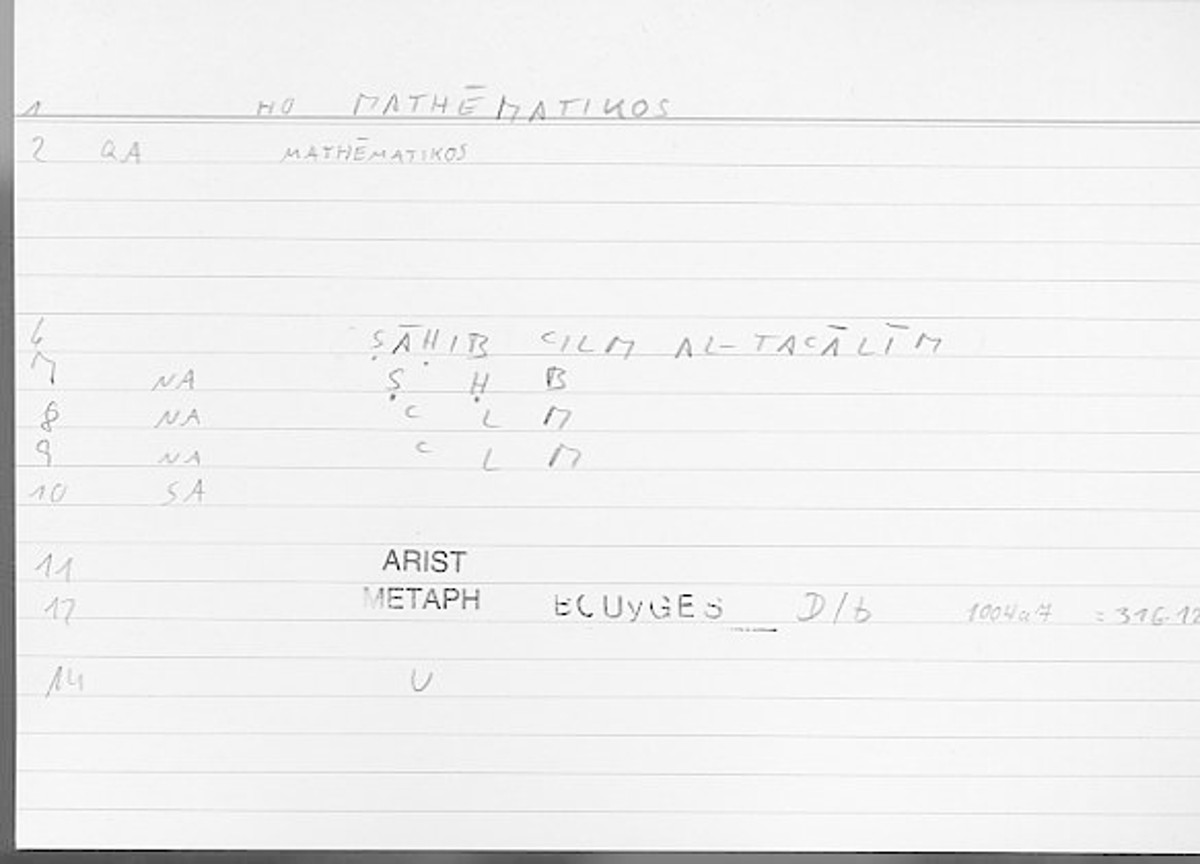 1 HO MATHĒMATIKOS
2 QA MATHĒMATIKOS
6 ṢĀḤIB CILM AL-TACĀLĪM
7 NA Ṣ Ḥ B
8 NA C L M
9 NA C L M
10 SA
11 ARIST
12 METAPH BOUyGES D/b 1004a7 = 316.12
14 U